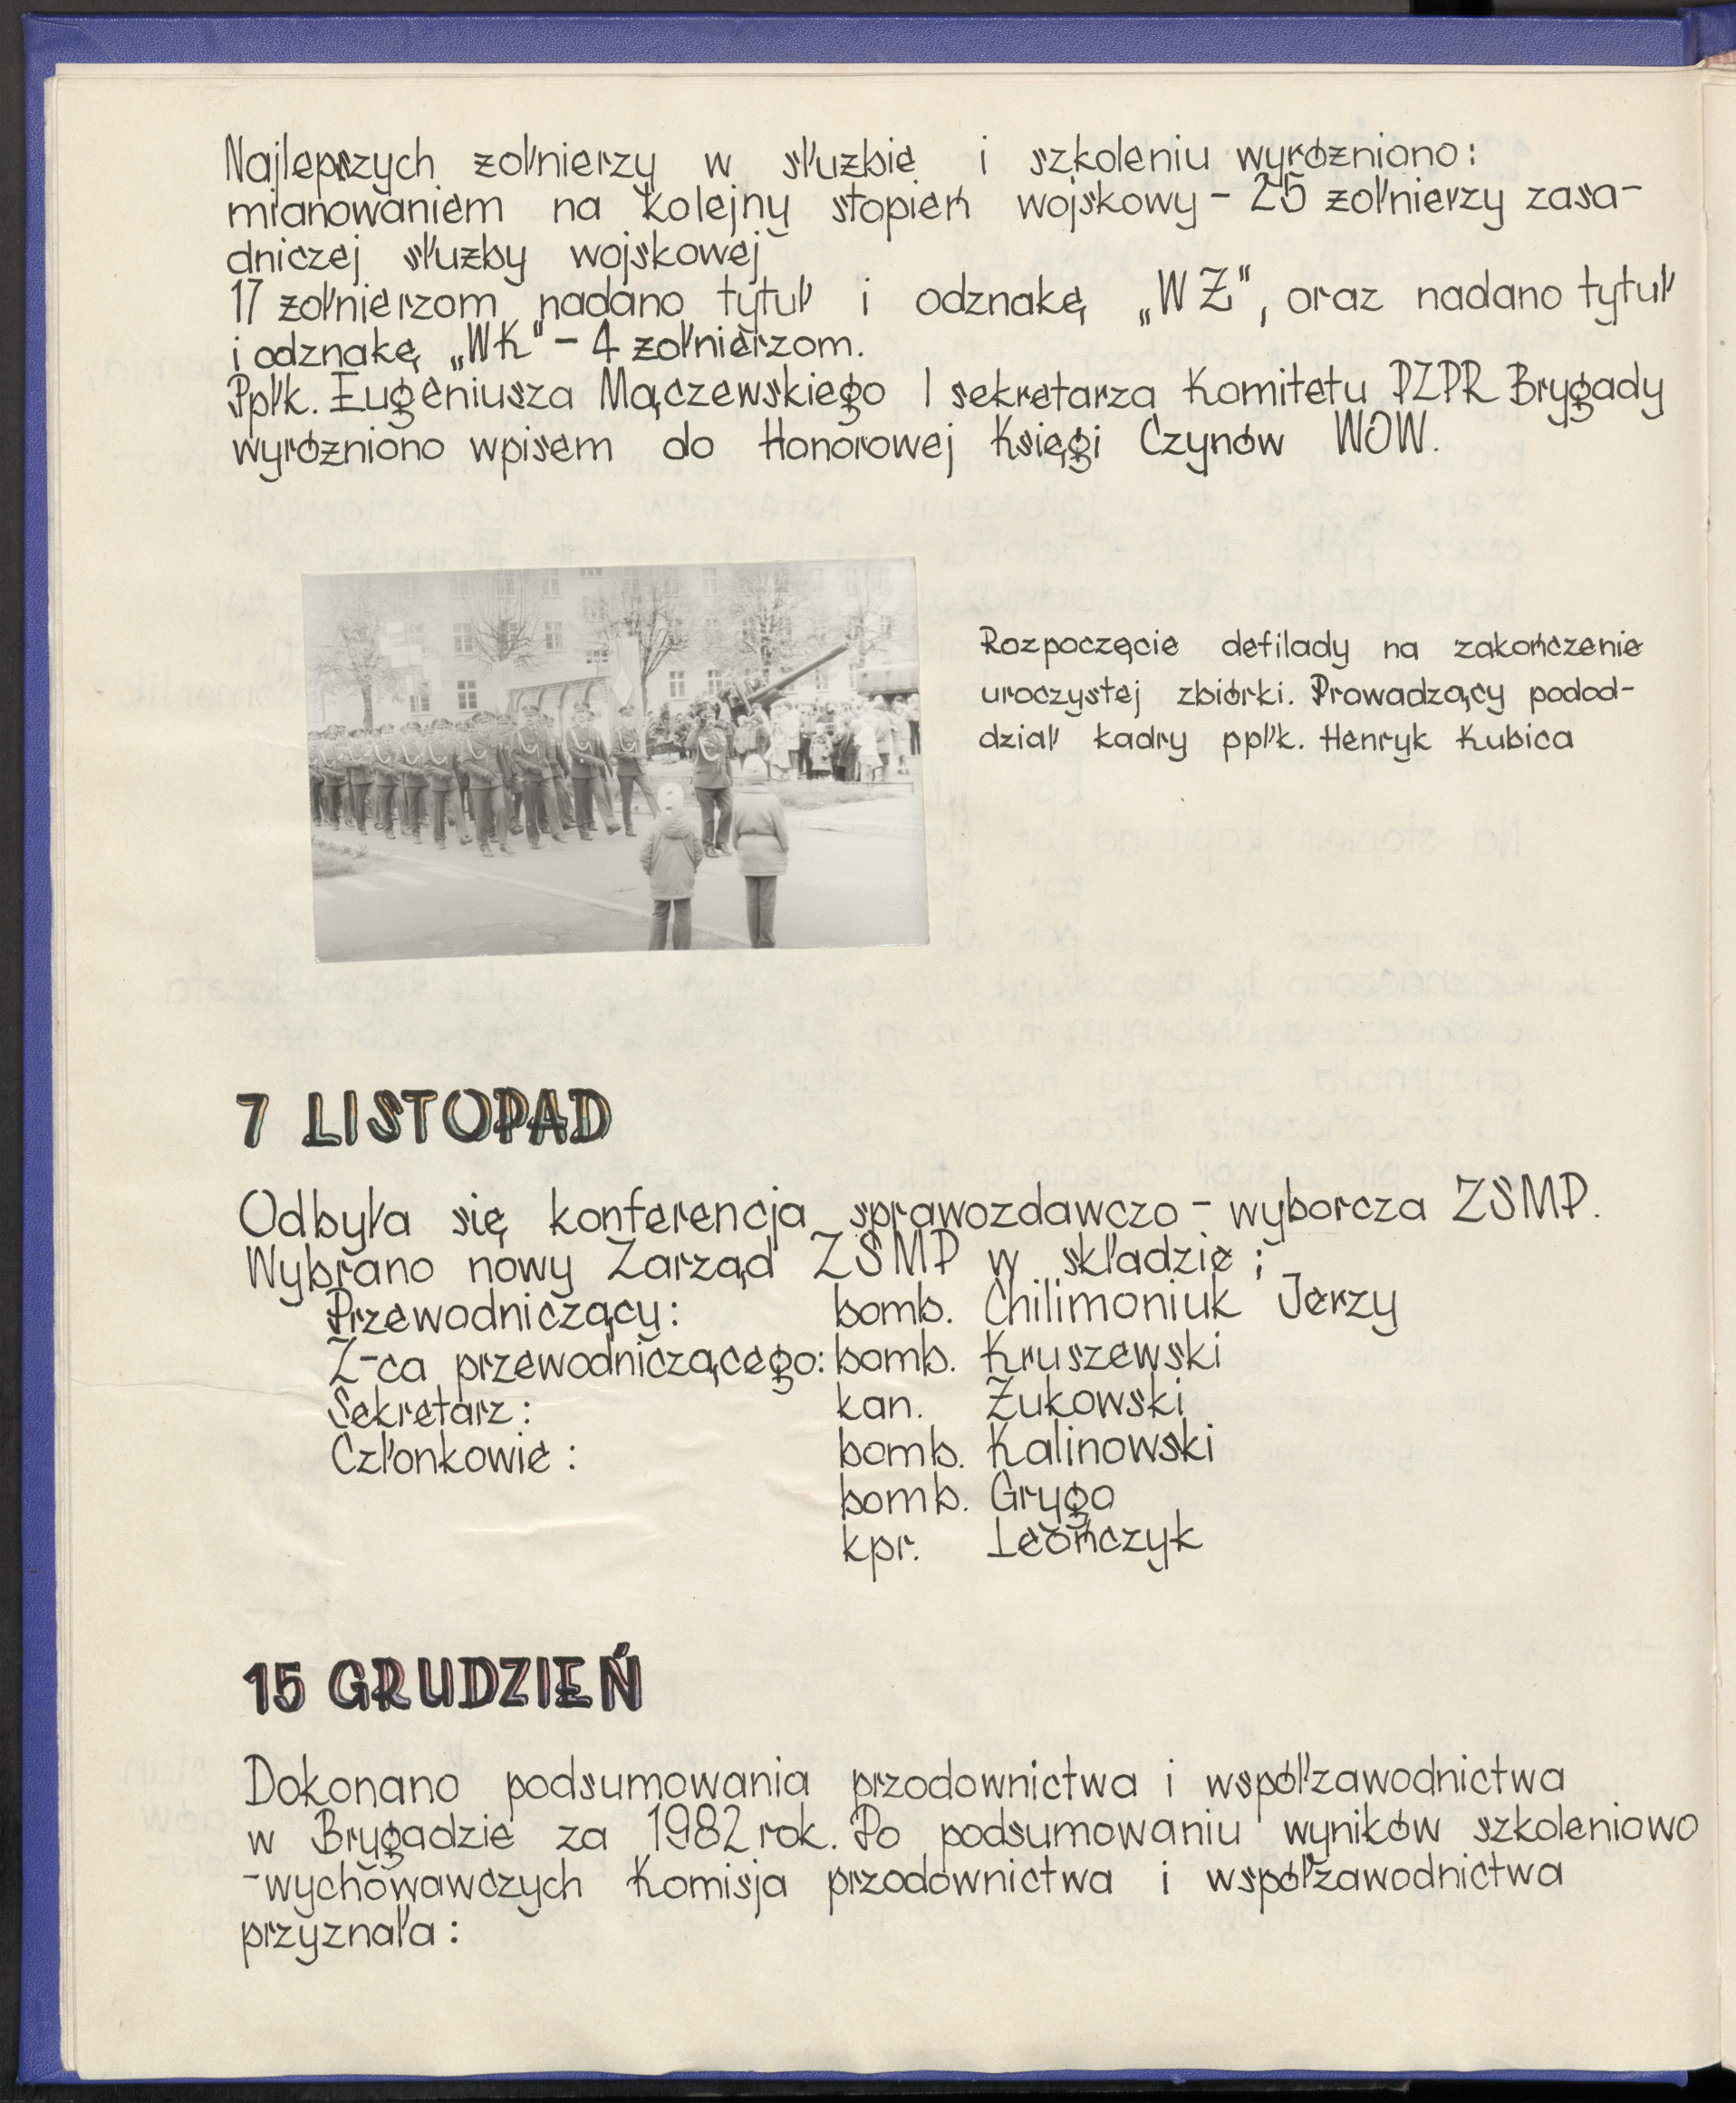 Najlepszych żołnierzy w służbie i szkoleniu wyróżniono:
mianowaniem na kolejny stopień wojskowy – 25 żołnierzy zasa-
dniczej służby wojskowej
17 żołnierzom nadano tytuł i odznakę „WŻ", oraz nadano tytuł
i odznakę „WK" – 4 żołnierzom.
Ppłk. Eugeniusza Mączewskiego I sekretarza Komitetu PZPR Brygady
wyróżniono wpisem do Honorowej Księgi Czynów WOW.
Rozpoczęcie defilady na zakończenie
uroczystej zbiórki. Prowadzący podod-
dział kadry ppłk. Henryk Kubica
7 LISTOPAD
Odbyła się konferencja sprawozdawczo – wyborcza ZSMP.
Wybrano nowy Zarząd ZSMP w składzie ;
Przewodniczący: bomb. Chilimoniuk Jerzy
Z-ca przewodniczącego: bomb. Kruszewski
Sekretarz : kan. Żukowski
Członkowie : bomb. Kalinowski
bomb. Grygo
kpr. Leończyk
15 GRUDZIEŃ
Dokonano podsumowania przodownictwa i współzawodnictwa
w Brygadzie za 1982 rok. Po podsumowaniu wyników szkoleniowo
-wychowawczych Komisja przodownictwa i współzawodnictwa
przyznała :